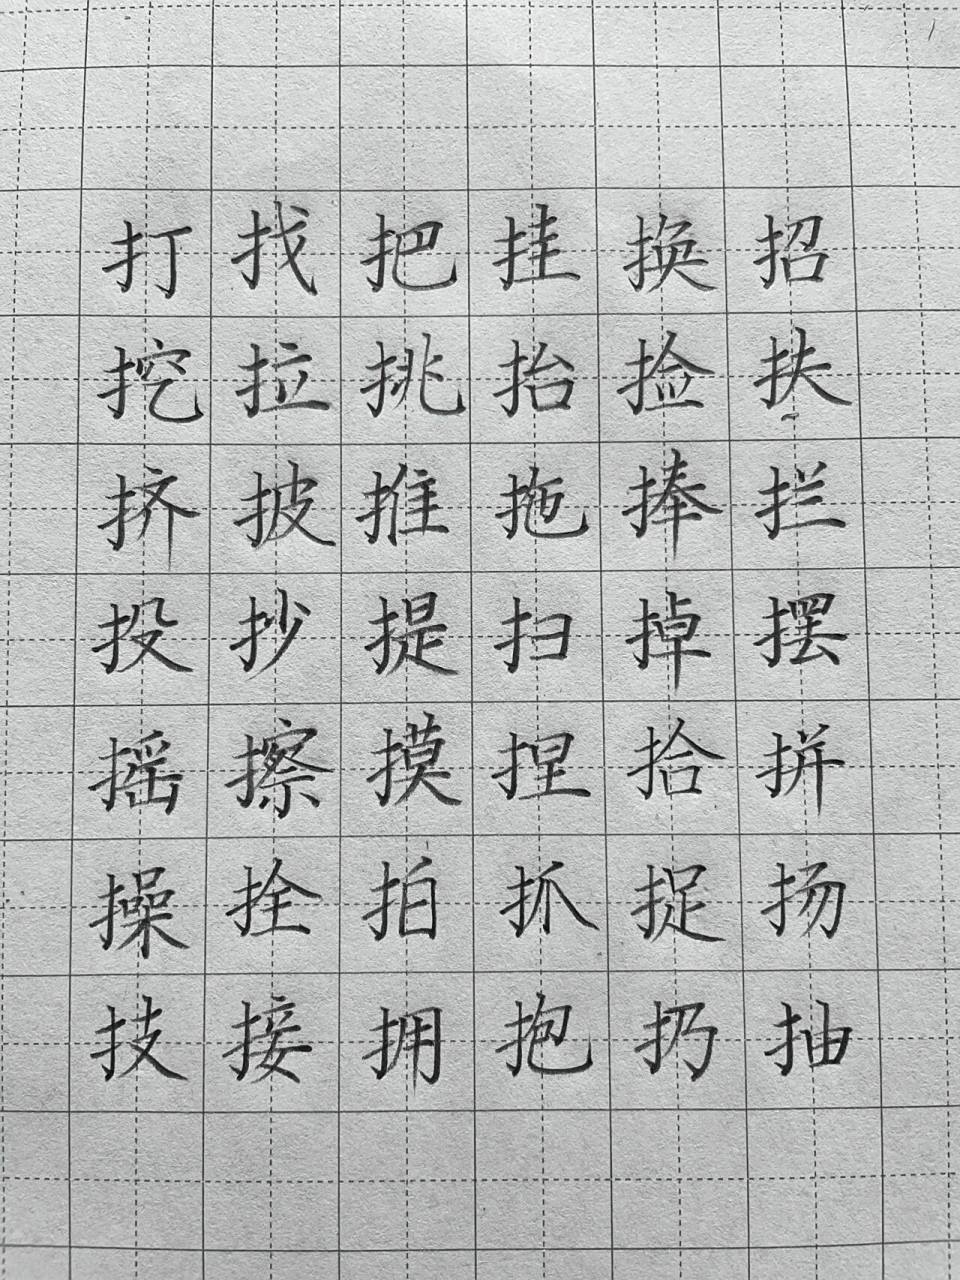 打找把挂换招
挖拉挑抬捡扶
挤披推拖捧拦
投抄提扫掉摆
摇擦摸捏拾拼
操拴拍抓捉扬
技接拥抱扔抽